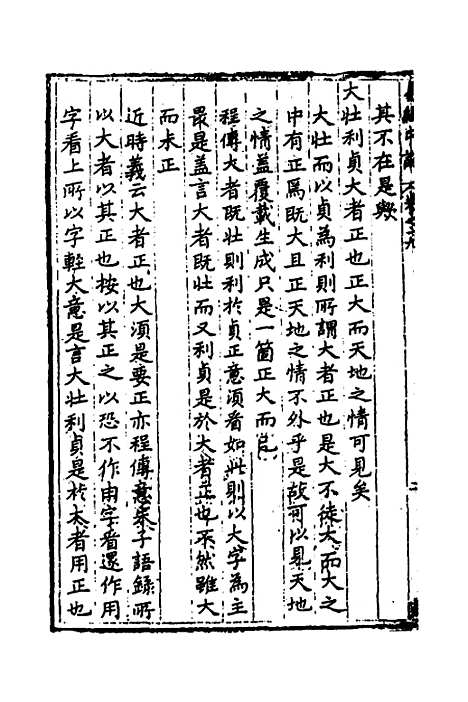 其不在是歟
大壯利貞大者正也正大而天地之情可見矣
大壯而以貞為利則所謂大者正也是大不徒大而大之
中有正焉既大且正天地之情不外乎是故可以見天地
之情蓋覆載生成只是一箇正大而已
程傳大者既壯則利於貞正意須看如此則以大字為主
最是蓋言大者既壯而又利貞是於大者正也不然雖大
而未正
近時義云大者正也大須是要正亦程傳意朱子語錄所
以大者以其正也按以其正之以恐不作由字看還作用
字看上所以字輕大意是言大壯利貞是於大者用正也